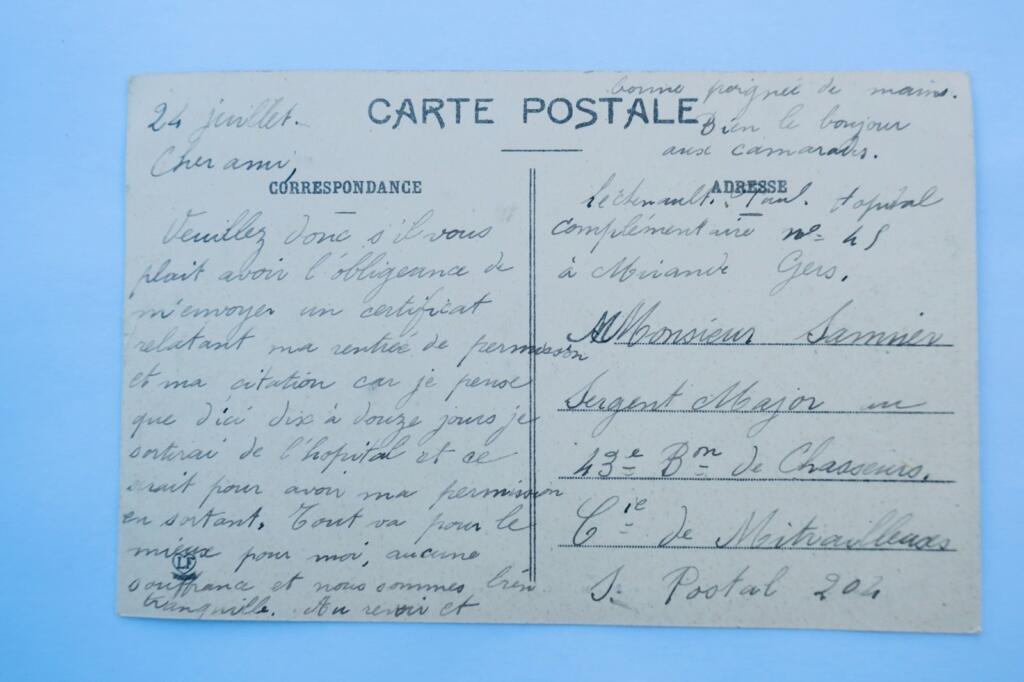 CARTE POSTALE
CORRESPONDANCE
24 juillet.
Cher ami,
Veuillez donc s'il vous
plait avoir l'obligeance de
m'envoyer un certificat
relatant ma rentrée de permission
et ma citation car je pense
que d'ici dix à douze jours je
sortirai de l'hopital et ce
serait pour avoir ma permission
en sortant. Tout va pour le
mieux pour moi, aucune
souffrance et nous sommes bien
tranquille. Au revoir et
LF
bonne poignée de mains.
Bien le bonjour
aux camarades.
ADRESSE
Paul. Hopital
complémentaire n° 45
à Mirande Gers.
Monsieur
Sergent Major au
43e Bon de Chasseurs.
Cie de Mitrailleuses
S. Postal 204